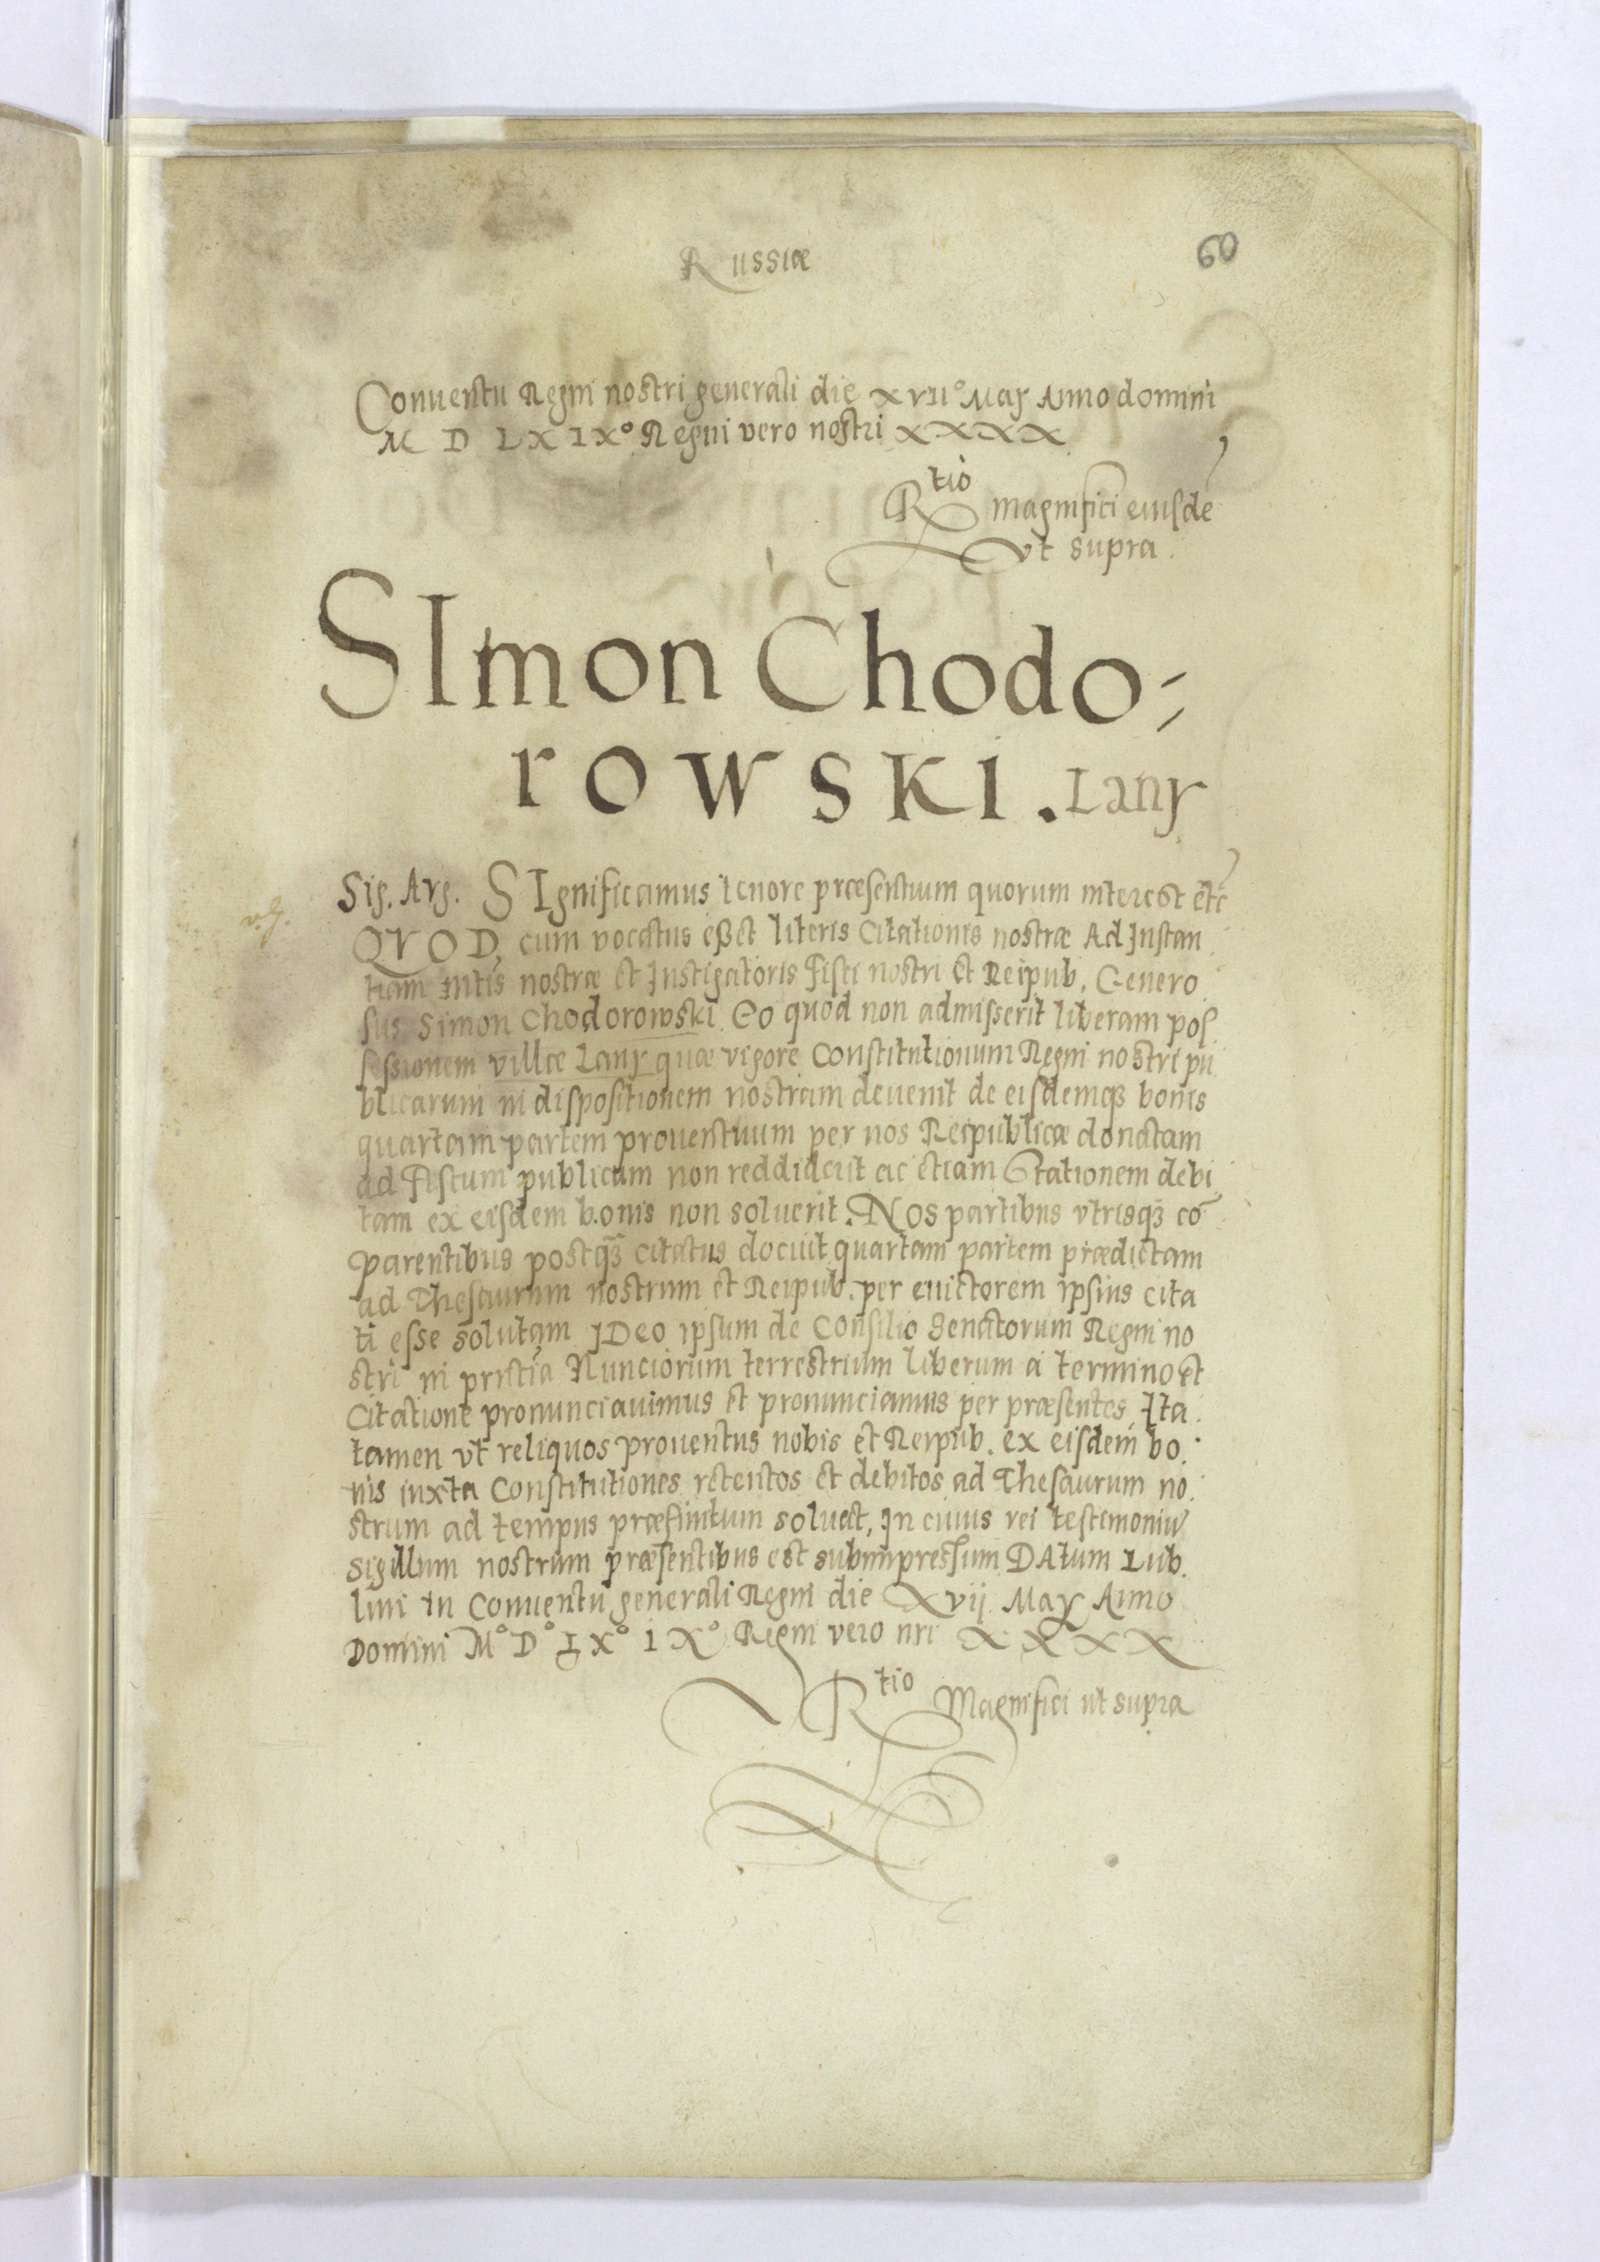 Russiæ
60
Conuentu Regni nostri generali die XVII° Maÿ Anno domini
M D LXIX° Regni vero nostri XXXX
Rtio magnifici eiusdē
vt supra.
SImon Chodo=
rowski. Lanÿ
Sig. Arg. SIgnificamus tenore præsentium quorum interest etc
QVOD, cum vocatus eßet literis Citationis nostræ Ad Instan
tiam Mtis nostræ et Instigatoris Fisci nostri et Reipub. Genero
sus Simon Chodorowski Eo quod non admisserit liberam pos
sessionem villæ Lanÿ quæ vigore Constitutionum Regni nostri pu
blicarum in dispositionem nostram deuenit de eisdemq3 bonis
quartam partem prouentuum per nos Reipublicæ donatam
ad Fiscum publicum non reddiderit ac etiam Stationem debi
tam ex eisdem bonis non soluerit. NOS partibus vtrisq3 cō
parentibus postq̄3 citatus docuit quartam partem prædictam
ad Thesaurum nostrum et Reipub. per euictorem ipsius cita
ti esse solutam IDeo ipsum de Consilio Senatorum Regni no
stri in præntia Nunciorum terrestrium liberum a termino et
Citatione pronunciauimus et pronunciamus per præsentes, Ita
tamen vt reliquos prouentus nobis et Reipub. ex eisdem bo.
nis iuxta Constitutiones retentos et debitos ad Thesaurum no.
strum ad tempus præfinitum soluat, In cuius rei testimoniū
sigillum nostrum præsentibus est subimpressum DAtum Lub.
lini in Conuentu generali Regni die XVij Maÿ Anno
Domini M° D° LX° IX° Regni vero nri XXXX
Rtio Magnifici ut supra